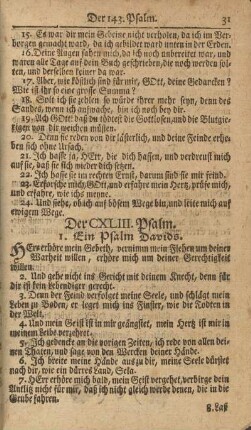 Der 143. Psalm. 31
15. Es war dir mein Gebeine nicht verholen, da ich im Ver-
borgen gemacht ward, da ich gebildet ward unten in der Erden.
16. Deine Augen sahen mich, da ich noch unbereitet war, und
waren alle Tage auf dein Buch geschrieben, die noch werden
solten, und derselben keiner da war.
17. Aber, wie köstlich sind für mir, GOtt, deine Gedancken?
Wie ist ihr so eine grosse Summa?
18. Solt ich sie zehlen so würde ihrer mehr seyn, denn des
Sandes, wenn ich aufwache, bin ich noch bey dir.
19. Ach GOtt! daß du tödtest die Gottlosen, und die Blutgie-
rigen von mir weichen müssen.
20. Denn sie reden von dir lästerlich, und deine Feinde erhe-
ben sich ohne Ursach.
21. Ich hasse ja, HErr, die dich hassen, und verdreust mich
auf sie, daß sie sich wider dich setzen.
22. Ich hasse sie in rechtem Ernst, darum sind sie mir feind.
23. Erforsche mich GOtt, und erfahre mein Hertz, prüfe mich,
und erfahre, wie ichs meine.
24. Und siehe, obich auf bösem Wege bin, und leite mich auf
ewigem Wege.
Der CXLIII. Psalm.
1. Ein Psalm Davids.
HErr erhöre mein Gebeth, vernimm mein Flehen um deiner
Warheit willen, erhöre mich um deiner Gerechtigkeit
willen.
2. Und gehe nicht ins Gericht mit deinem Knecht, denn für
dir ist kein Lebendiger gerecht.
3. Denn der Feind verfolget meine Seele, und schlägt mein
Leben zu Boden, er leget mich ins Finster, wie die Todten
in der Welt.
4. Und mein Geist ist in mir geängstet, mein Hertz ist mir in
meinem Leibe verzehret.
5. Ich gedencke an die vorigen Zeiten, ich rede von allen dei-
nen Thaten, und sage von den Wercken deiner Hände.
6. Ich breite meine Hände aus zu dir, meine Seele dürstet
nach dir, wie ein dürres Land, Sela.
7. HErr erhöre mich bald, mein Geist vergehet, verbirge dein
Antlitz nicht für mir, daß ich nicht gleich werde denen, die in
die Grube fahren.
8. Laß